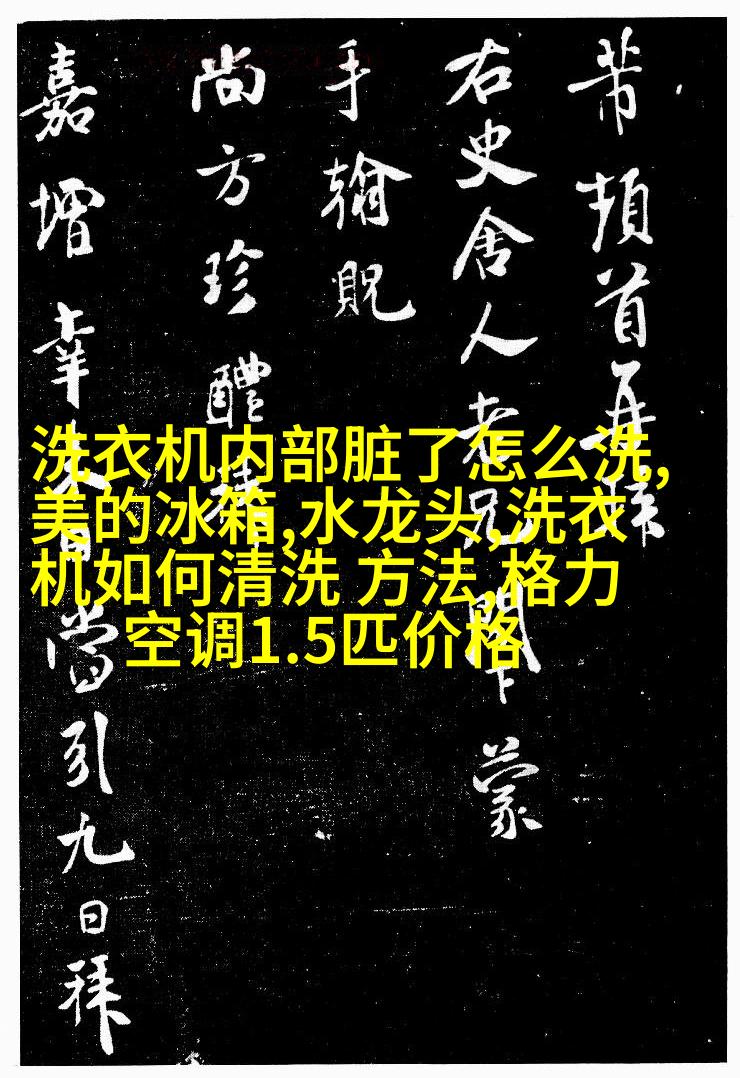 芾頓首再拜
右史舍人老兄閣下蒙
手翰貺
尚方珍醴
嘉增幸當引九日拜
洗衣机内部脏了怎么洗,
美的冰箱,水龙头,洗衣
机如何清洗 方法,格力
空调1.5匹价格